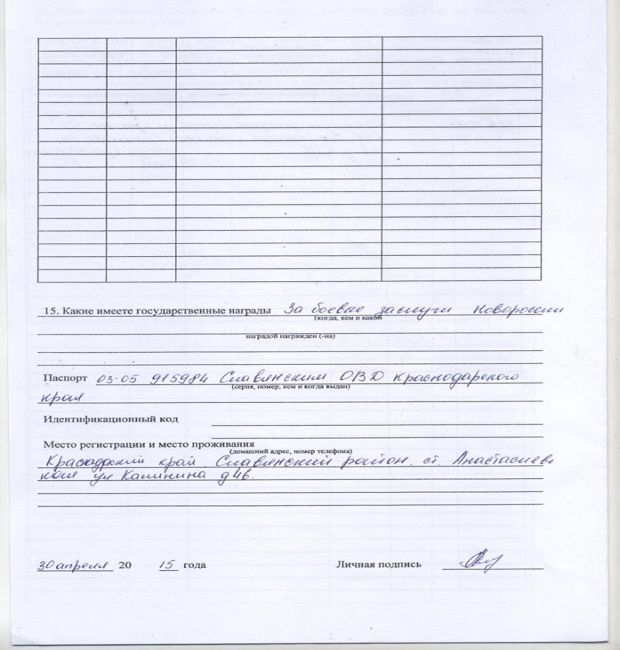 15. Какие имеете государственные награды За боевые заслуги Новороссии
(когда, кем и какой
наградой награжден (-на)
Паспорт 03-05 915984 Славянским ОВД Краснодарского
(серия, номер, кем и когда выдан)
края
Идентификационный код
Место регистрации и место проживания
(домашний адрес, номер телефона)
Краснодарский край Славянский район. ст. Анастасиевс
кая ул Калинина д 4в.
30 апреля 20 15 года Личная подпись